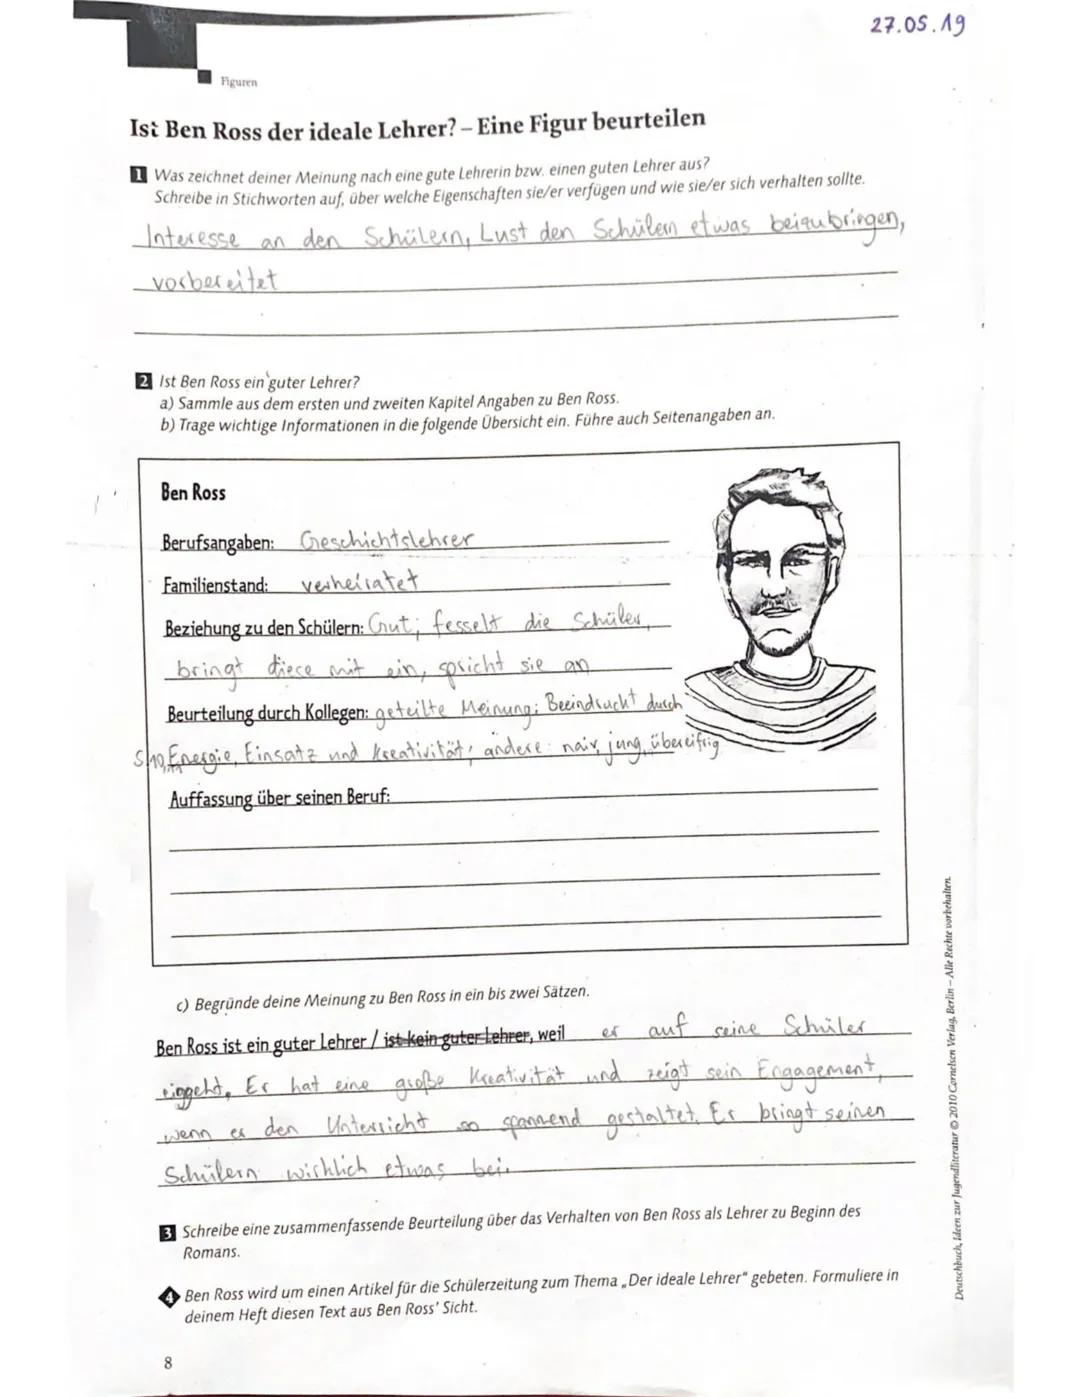 27.05.19
Figuren
Ist Ben Ross der ideale Lehrer? – Eine Figur beurteilen
1 Was zeichnet deiner Meinung nach eine gute Lehrerin bzw. einen guten Lehrer aus?
Schreibe in Stichworten auf, über welche Eigenschaften sie/er verfügen und wie sie/er sich verhalten sollte.
Interesse an den Schülern, Lust den Schülern etwas beizubringen,
vorbereitet
2 Ist Ben Ross ein guter Lehrer?
a) Sammle aus dem ersten und zweiten Kapitel Angaben zu Ben Ross.
b) Trage wichtige Informationen in die folgende Übersicht ein. Führe auch Seitenangaben an.
Ben Ross
Berufsangaben: Geschichtslehrer
Familienstand: verheiratet
Beziehung zu den Schülern: Gut; fesselt die Schüler,
bringt diese mit ein, spricht sie an
Beurteilung durch Kollegen: geteilte Meinung; Beeindruckt durch
S.10, Energie, Einsatz und Kreativität, andere: naiv, jung, übereifrig
Auffassung über seinen Beruf:
c) Begründe deine Meinung zu Ben Ross in ein bis zwei Sätzen.
Ben Ross ist ein guter Lehrer / ist kein guter Lehrer, weil er auf seine Schüler
eingeht. Er hat eine große Kreativität und zeigt sein Engagement,
wenn er den Unterricht so spannend gestaltet. Er bringt seinen
Schülern wirklich etwas bei.
3 Schreibe eine zusammenfassende Beurteilung über das Verhalten von Ben Ross als Lehrer zu Beginn des
Romans.
4 Ben Ross wird um einen Artikel für die Schülerzeitung zum Thema „Der ideale Lehrer" gebeten. Formuliere in
deinem Heft diesen Text aus Ben Ross' Sicht.
8
Deutschbuch, Ideen zur Jugendliteratur © 2010 Cornelsen Verlag, Berlin – Alle Rechte vorbehalten.